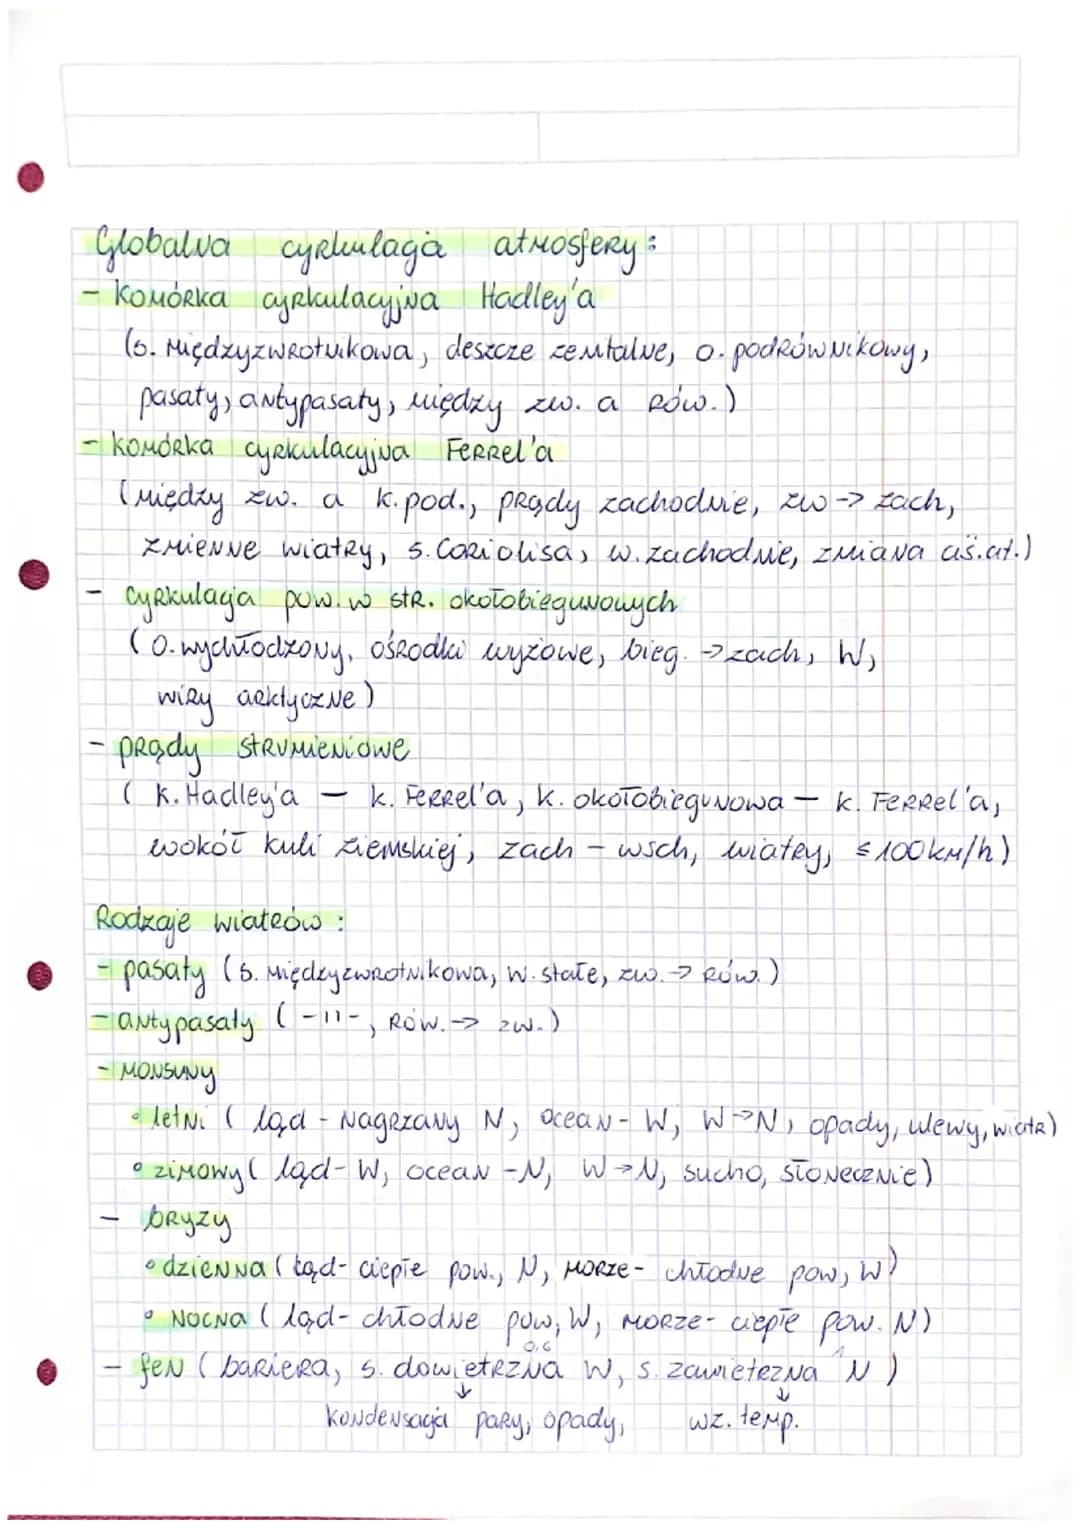 Globalna cyrkulacja atmosfery:
- komórka cyrkulacyjna Hadley'a
(s. międzyzwrotnikowa, deszcze zenitalne, o. podrównikowy,
pasaty, antypasaty, między zw. a rów.)
- komórka cyrkulacyjna Ferrel'a
(między zw. a k. pod., prądy zachodnie, zw -> zach,
zmienne wiatry, s. Coriolisa, w. zachodnie, zmiana ciś. at.)
- cyrkulacja pow. w str. okołobiegunowych
(o. wychłodzony, ośrodki wyżowe, bieg. -> zach, W,
wiry arktyczne)
- prądy strumieniowe
(k. Hadley'a - k. Ferrel'a, k. okołobiegunowa - k. Ferrel'a,
wokół kuli ziemskiej, zach - wsch, wiatry, ≤ 100 km/h)
Rodzaje wiatrów:
- pasaty (s. międzyzwrotnikowa, w. stałe, zw. -> rów.)
- antypasaty (-11-, rów. -> zw.)
- monsuny
• letni (ląd - nagrzany N, ocean - W, W -> N, opady, ulewy, wiatr)
• zimowy (ląd - W, ocean - N, W -> N, sucho, słonecznie)
- bryzy
• dzienna (ląd - ciepłe pow., N, morze - chłodne pow, W)
• nocna (ląd - chłodne pow, W, morze - ciepłe pow. N)
- fen (bariera, s. dowietrzna 0,6 W, s. zawietrzna 1 N)
↓ ↓
kondensacja pary, opady, wz. temp.